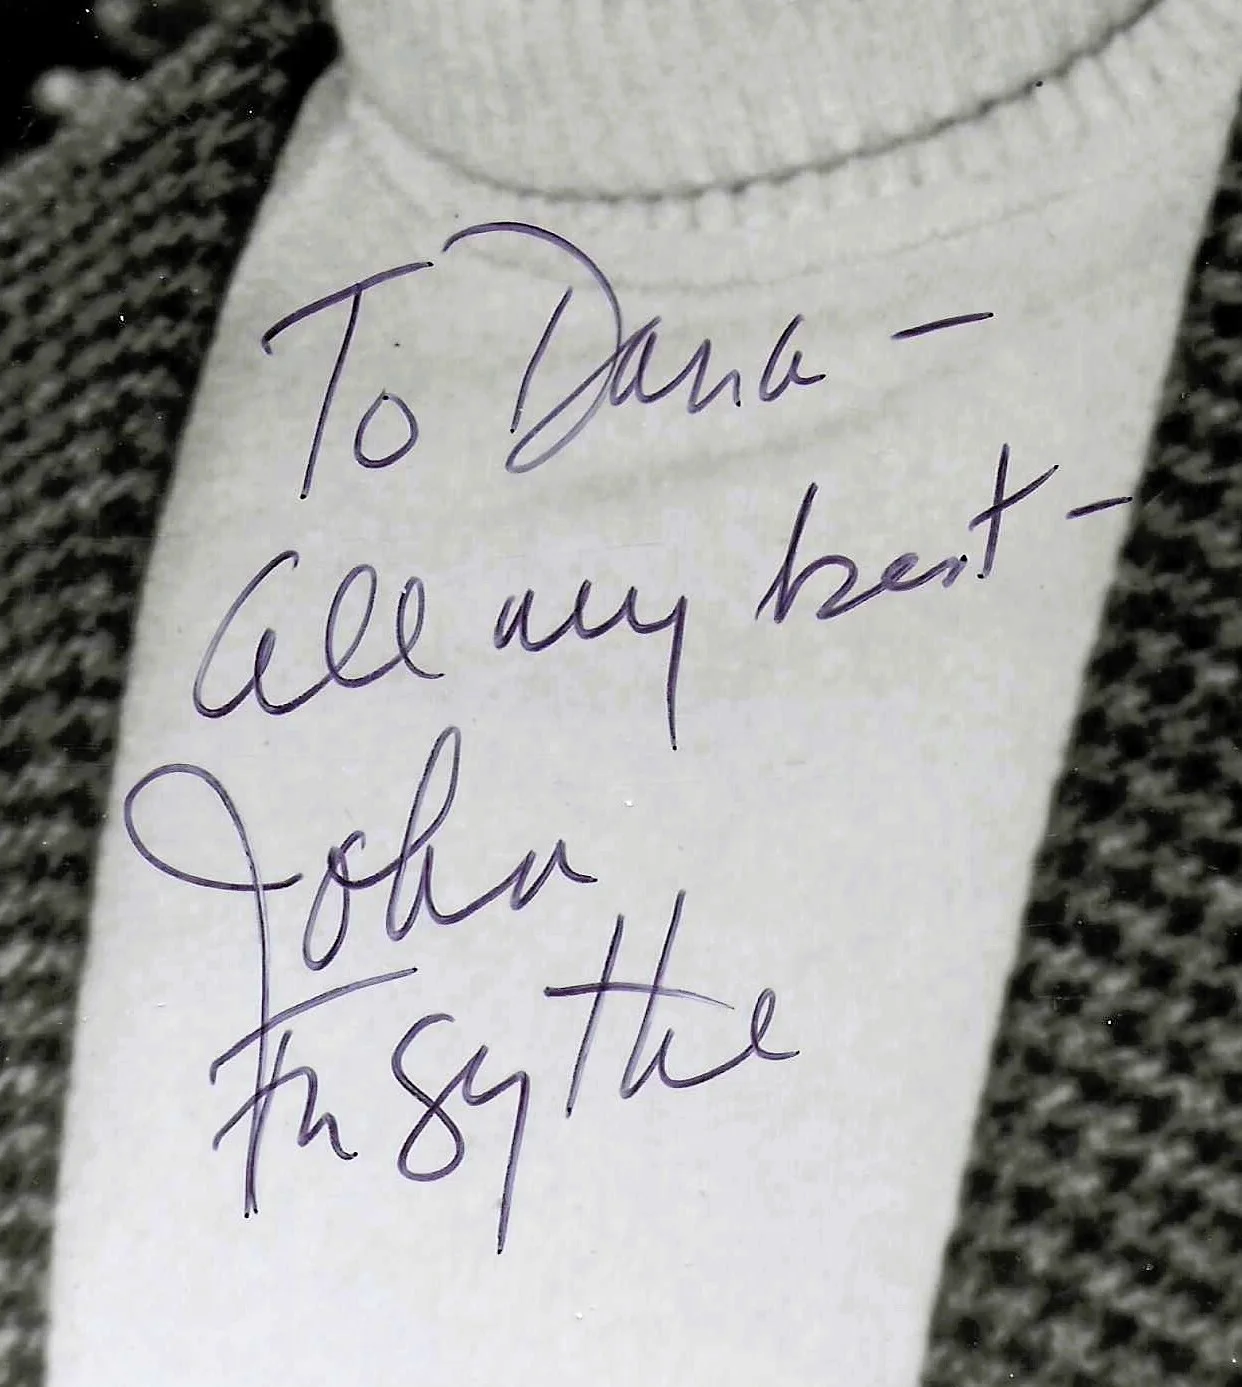 To Dana –
All my best –
John
Forsythe